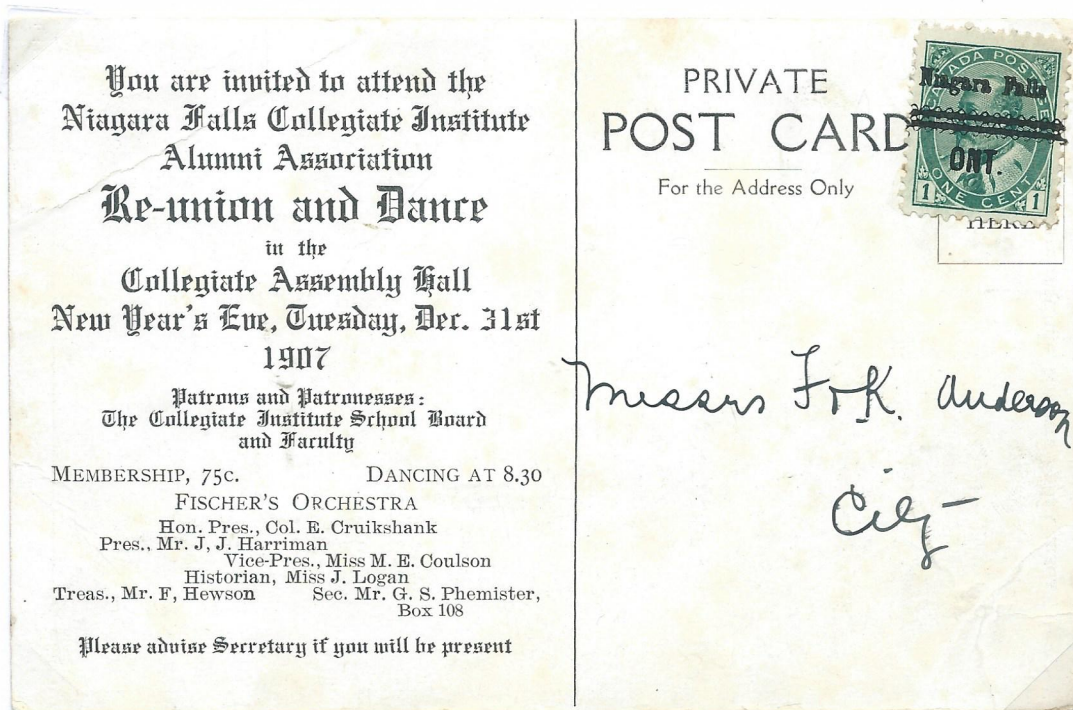 You are invited to attend the
Niagara Falls Collegiate Institute
Alumni Association
Re-union and Dance
in the
Collegiate Assembly Hall
New Year's Eve, Tuesday, Dec. 31st
1907
Patrons and Patronesses:
The Collegiate Institute School Board
and Faculty
MEMBERSHIP, 75c. DANCING AT 8.30
FISCHER'S ORCHESTRA
Hon. Pres., Col. E. Cruikshank
Pres., Mr. J, J. Harriman
Vice-Pres., Miss M. E. Coulson
Historian, Miss J. Logan
Treas., Mr. F, Hewson Sec. Mr. G. S. Phemister,
Box 108
Please advise Secretary if you will be present
PRIVATE
POST CARD
For the Address Only
HERE
Niagara Falls
ONT.
ONE CENT
1 1
Messrs F & K. Anderson
City